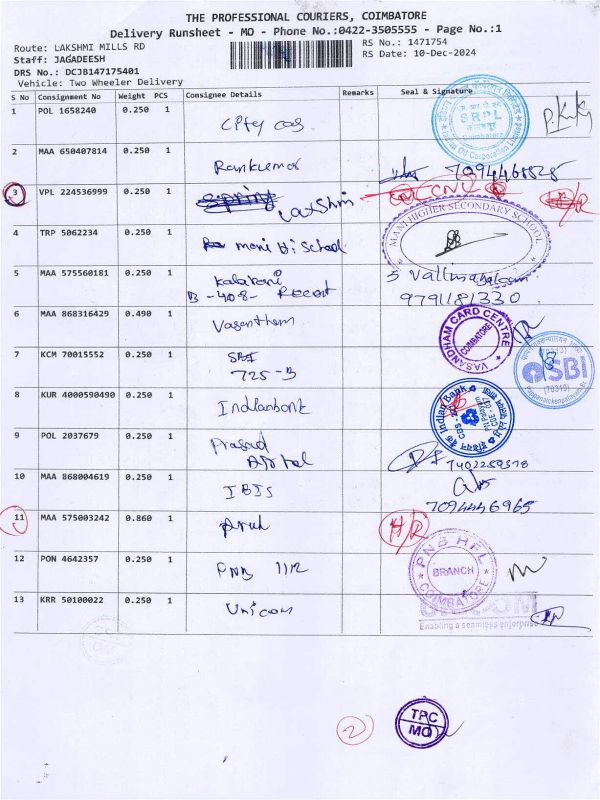 THE PROFESSIONAL COURIERS, COIMBATORE
Delivery Runsheet - MO - Phone No.:0422-3505555 - Page No.:1
Route: LAKSHMI MILLS RD RS No.: 1471754
Staff: JAGADEESH RS Date: 10-Dec-2024
DRS No.: DCJB147175401
Vehicle: Two Wheeler Delivery
S No Consignment No Weight PCS Consignee Details Remarks Seal & Signature
1 POL 1658240 0.250 1
SRPL
Coimbatore
2 MAA 650407814 0.250 1 Ramkumar
3 VPL 224536999 0.250 1
MANI HIGHER SECONDARY SCHOOL
4 TRP 5062234 0.250 1 mani Hi School
5 MAA 575560181 0.250 1
B - 408 -
9791181330
6 MAA 868316429 0.490 1 Vasantham
VASANDHAM CARD CENTRE
COIMBATORE
7 KCM 70015552 0.250 1 SBI
725-B
SBI
8 KUR 4000590490 0.250 1 Indianbank
Indian Bank
9 POL 2037679 0.250 1 Prasad
10 MAA 868004619 0.250 1 IBIS
7094446965
11 MAA 575003242 0.860 1 Arul
12 PON 4642357 0.250 1 PNB
PNB HFL
BRANCH
COIMBATORE
13 KRR 50100022 0.250 1 Unicom
Enabling a seamless enterprise
2
TPC
MO